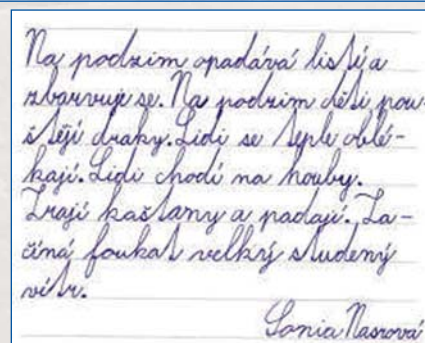 Na podzim opadává listí a
zbarvuje se. Na podzim děti pou-
štějí draky. Lidi se teple oblé-
kají. Lidi chodí na houby.
Zrají kaštany a padají. Za-
číná foukat velký studený
vítr.
Sonia Nasrová